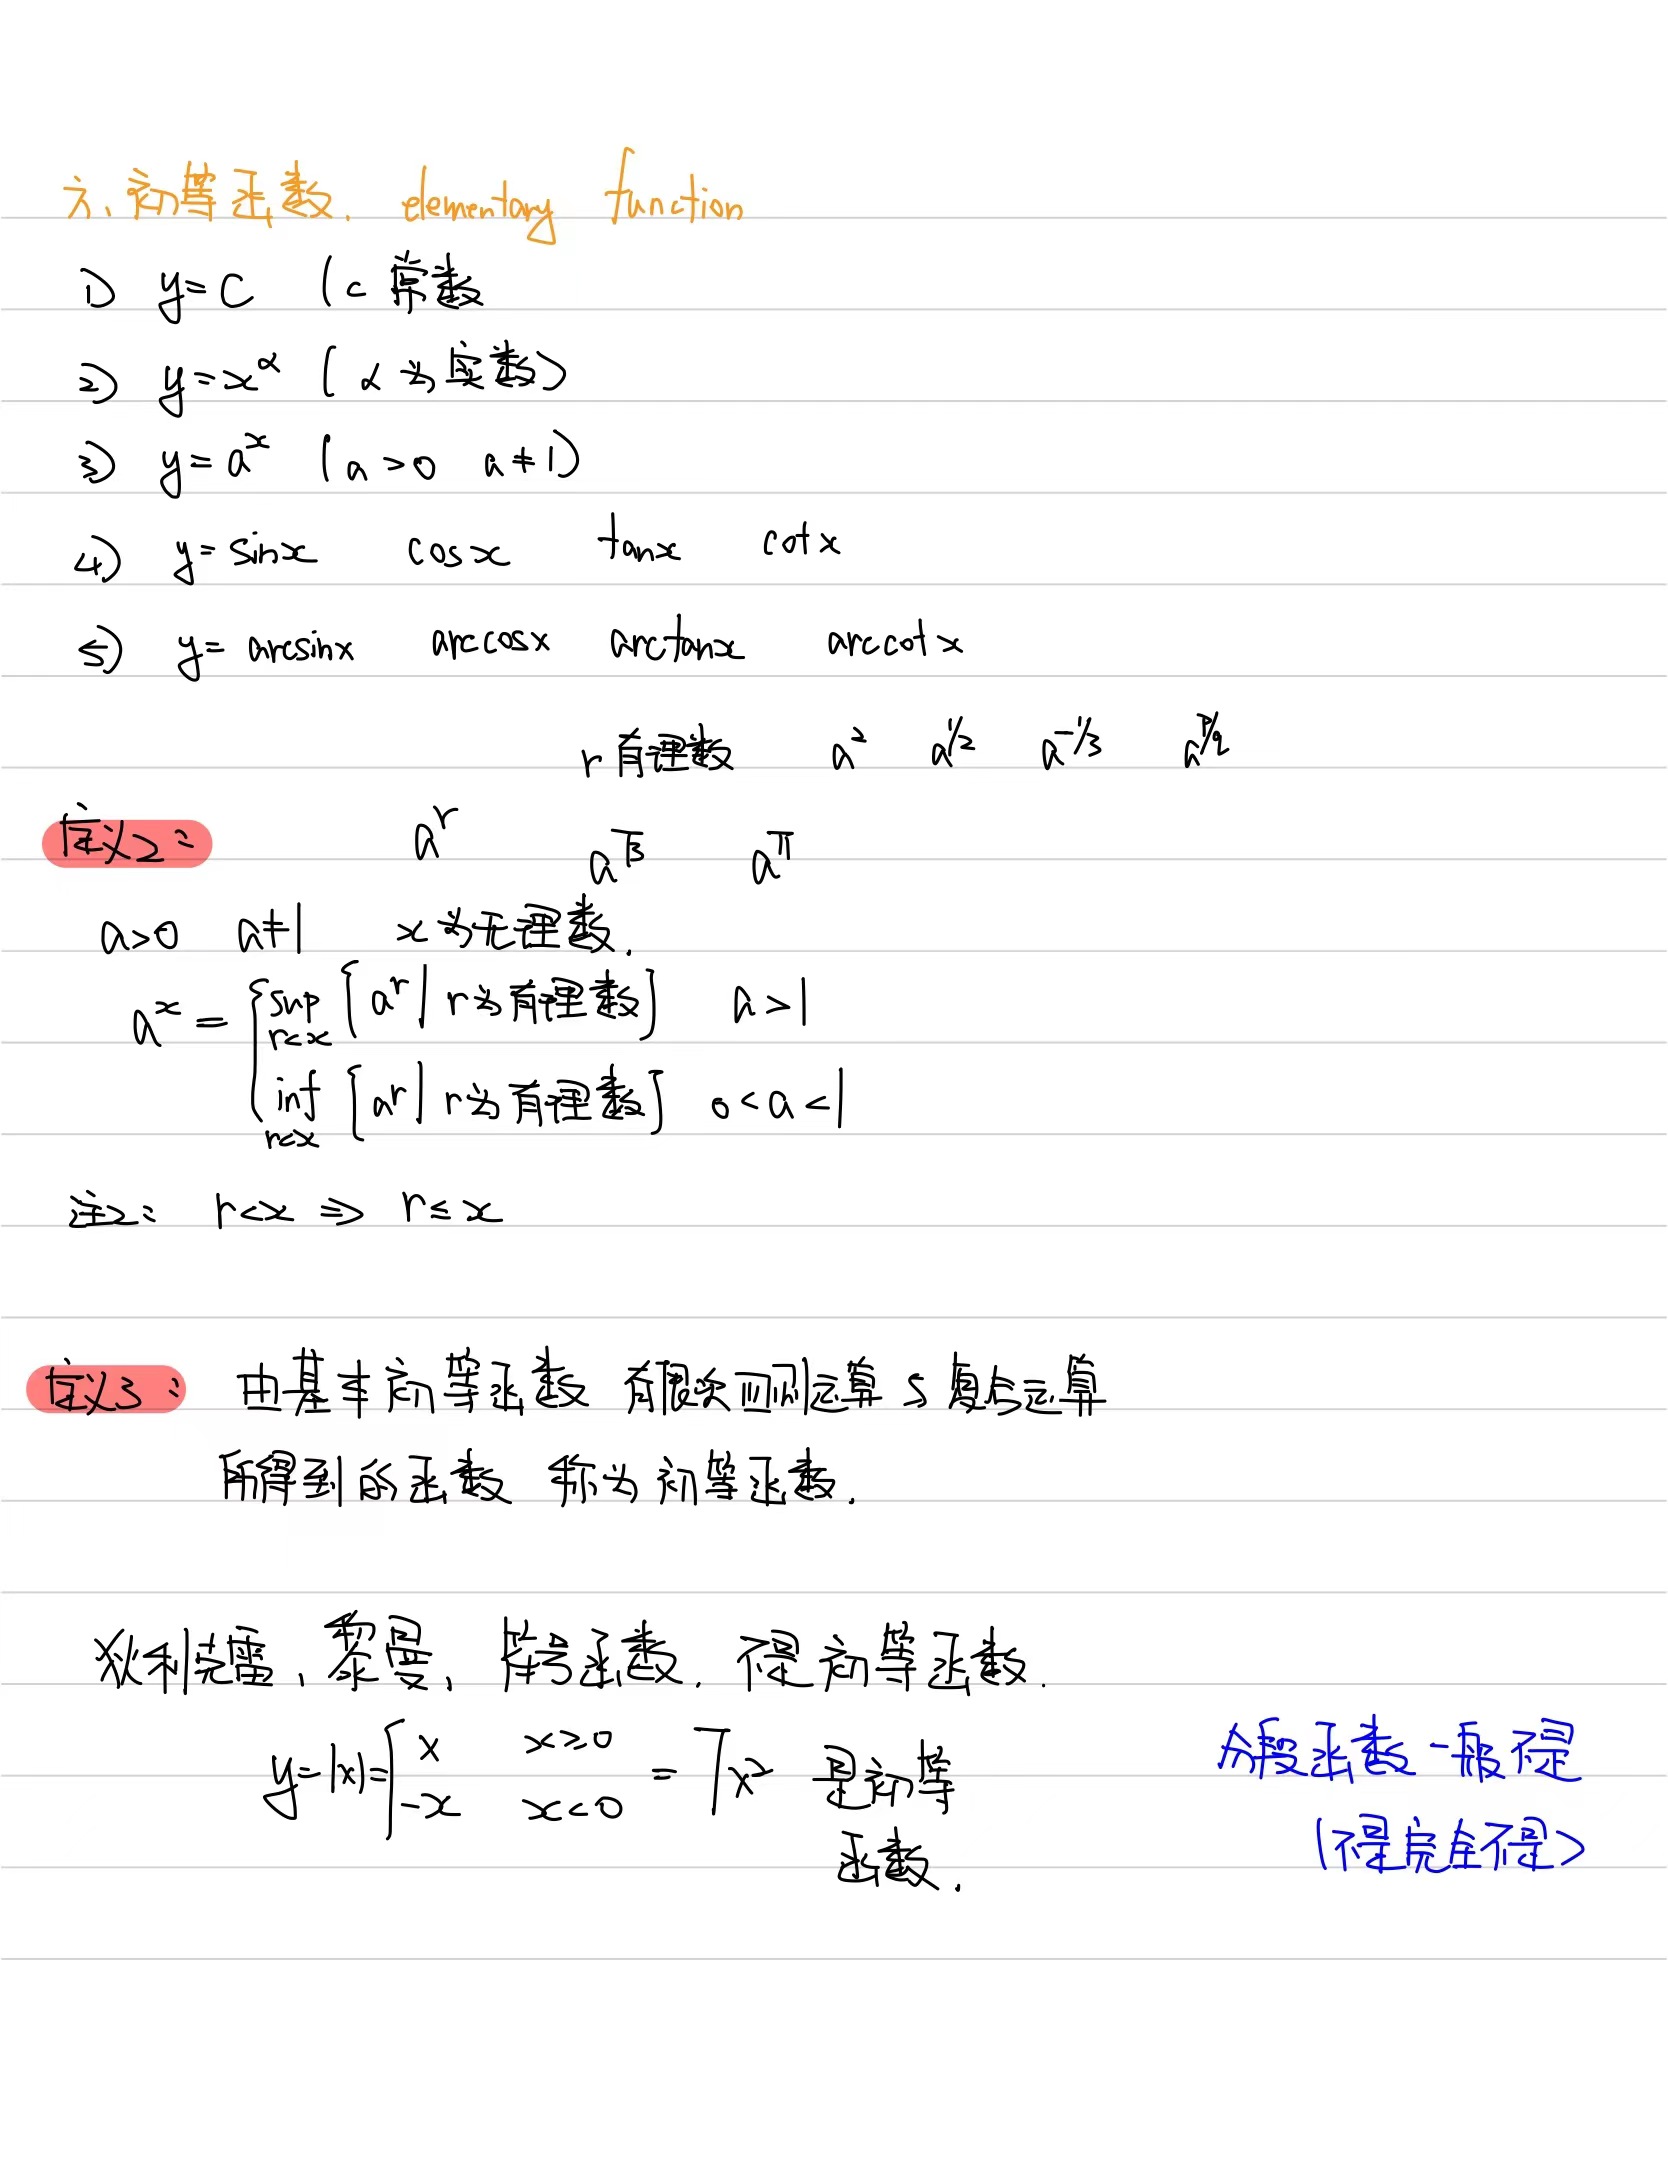 六、初等函数. elementary function
1) y=C (c 常数
2) y=x^α (α为实数)
3) y=a^x (a>0 a≠1)
4) y=sinx cosx tanx cotx
5) y=arcsinx arccosx arctanx arccotx
r 有理数 a^2 a^1/2 a^-1/3 a^p/q
定义2: a^r a^√3 a^π
a>0 a≠1 x为无理数.
a^x = { sup r<x [a^r | r为有理数] a>1
inf r<x [a^r | r为有理数] 0<a<1
注2: r<x ⇒ r≤x
定义3: 由基本初等函数 有限次四则运算与复合运算
所得到的函数 称为初等函数.
狄利克雷、黎曼、符号函数. 不是初等函数.
y=|x|= { x x≥0
-x x<0 = √x^2 是初等
函数.
分段函数一般不是
(不是完全不是)